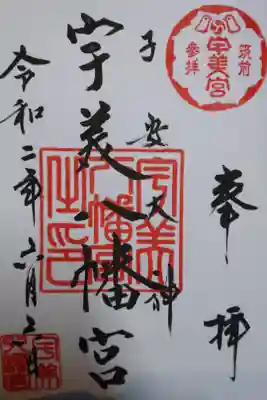 筑前
宇美宮
参拝
奉拝
子安大神
宇美八幡宮
宇美八幡宮之印
令和二年六月三日